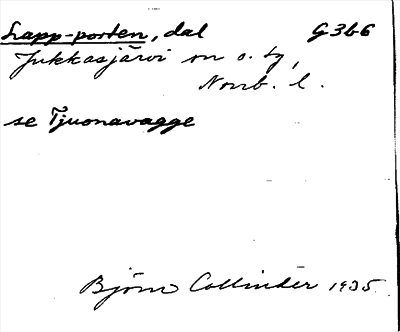 Lapp-porten, dal G3b6
Jukkasjärvi sn o. tg,
Norrb. l.
se Tjuonavagge
Björn Collinder 1935